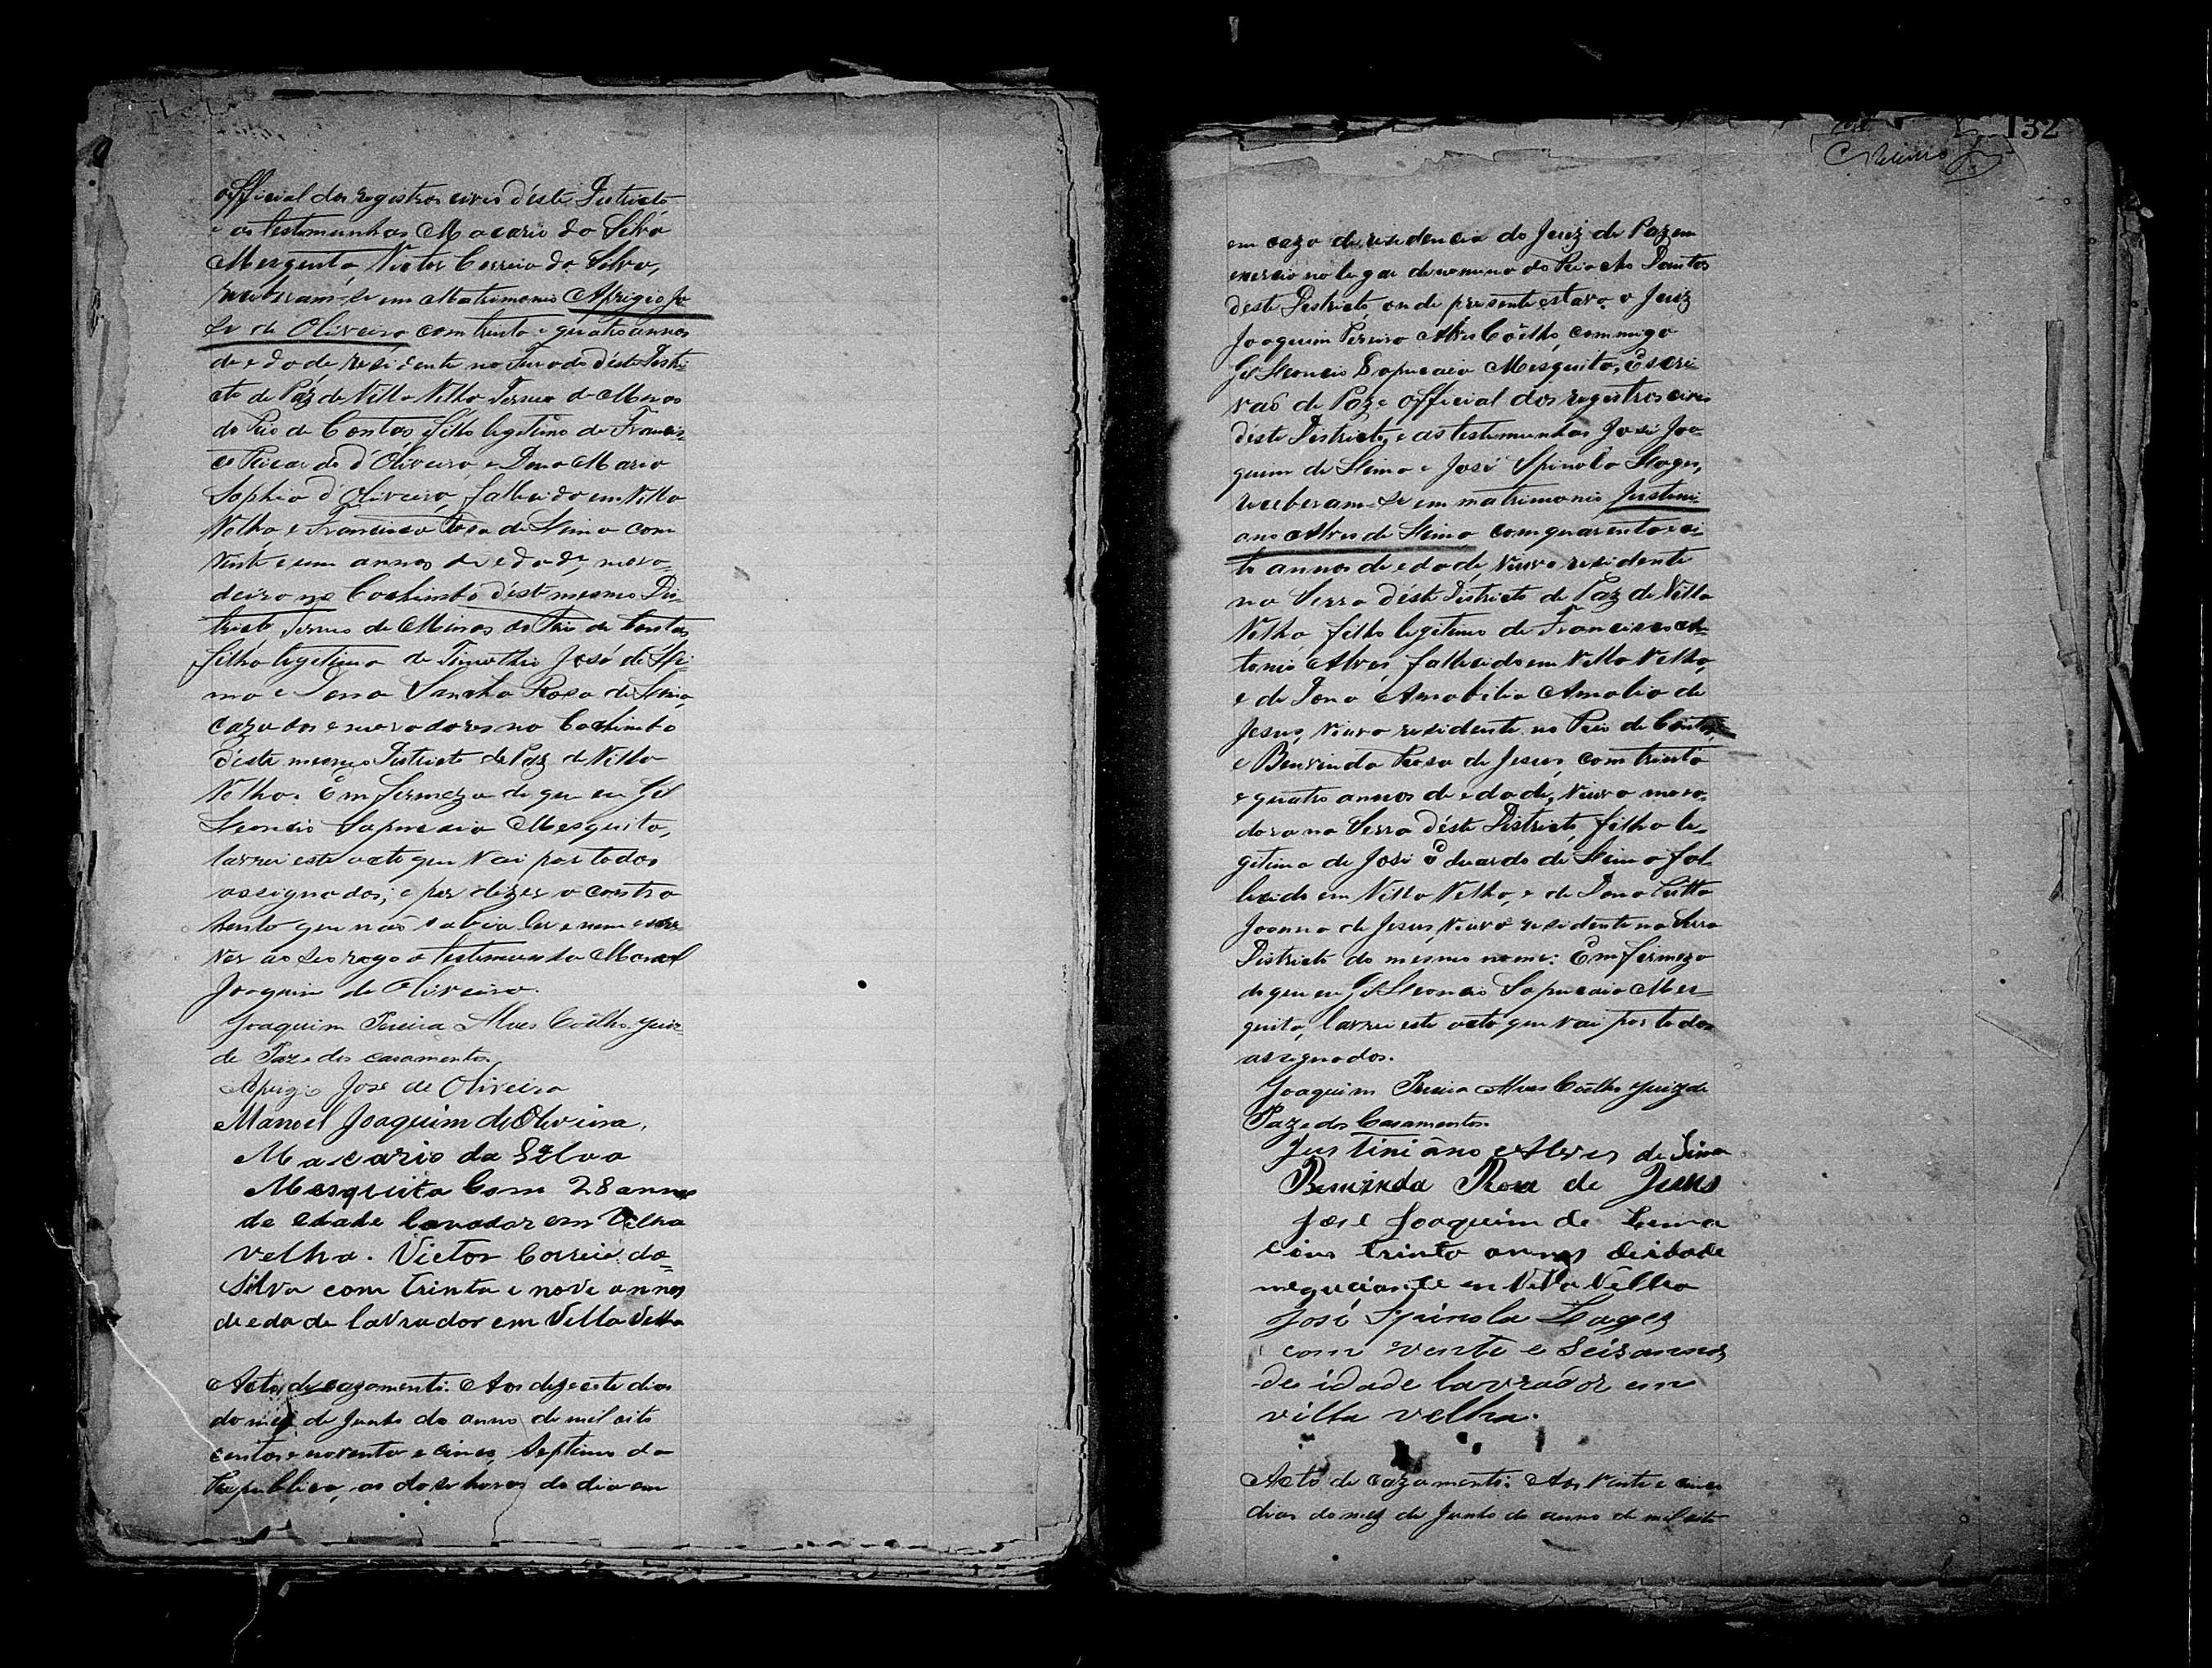 official dos registros civis d'éste Districto
e as testemunhas Macario da Silva
Mesquita, Victor Correia da Silva,
receberam-se em Matrimonio Aprigio Jo
sé de Oliveira com trinta e quatro annos
de edade residente no Districto d'éste Distri
cto de Paz de Villa Velha Termo de Minas
do Rio de Contas filho legitimo de Francis
co Ricardo d'Oliveira, e Dona Maria
Sophia d'Oliveira, fallecida em Villa
Velha e Francisca Rosa de Lima com
vinte e um annos de edade, mora-
deira no Cochimbo d'éste mesmo Dis-
tricto, Termo de Minas do Rio de Contas,
filha legitima de Timotheo José de Li-
ma e Dona Sancha Rosa de Lima,
cazados e moradores no Cochimbo
d'éste mesmo Districto de Paz de Villa
Velha. Em firmeza do que eu Gil
Leoncio Sapucaia Mesquita,
lavrei este acto que vai por todos
assignados; e por dizer a contra
hente que não sabia ler e nem escre
ver ao seo rogo a testemunha Manoel
Joaquim de Oliveira.
Joaquim Pereira Alves Coêlho. Juiz
de Paz e dos casamentos.
Aprigio José de Oliveira
Manoel Joaquim de Oliveira,
Macario da Silva
Mesquita Com 28 annos
de edade lavrador em Vilha
velha. Victor Correia da=
Silva com trinta e nove annos
de edade lavrador em Villa Velha
Acto de cazamento. Aos dezesete dias
do mez de Junho do anno de mil oito
centos e noventa e cinco, Septimo da
Republica, as doze horas do dia em
132
em caza de residencia do Juiz de Paz em
exercio no lugar denominado Riacho Dantas
deste Districto, onde presente estava o Juiz
Joaquim Pereira Alves Coêlho, commigo
Gil Leoncio Sapucaia Mesquita, Escri-
vaõ de Paz e official dos registros civis
d'éste Districto, e as testemunhas José Joa-
quim de Lima e José Spinola Lages,
receberam-se em matrimonio Justini-
ano Alves de Lima com quarenta e oi-
to annos de edade, viuvo residente
na Serra d'éste Districto de Paz de Villa
Velha filho legitimo de Francisco An-
tonio Alves, fallecido em Villa Velha,
e de Dona Amabilia Amalia de
Jesus, viuva residente no Rio de Contas,
e Benvinda Rosa de Jesus, com trinta
e quatro annos de edade, viuva mora-
dora na Serra d'éste Districto, filha le-
gitima de José Eduardo de Lima fal-
lecido em Villa Velha, e de Dona
Joanna de Jesus, viuva residente na Serra
Districto do mesmo nome: Em firmeza
do que eu Gil Leoncio Sapucaia Mes-
quita, lavrei este acto que vai por todos
assignados.
Joaquim Pereira Alves Coêlho Juiz de
Paz e dos Casamentos.
Justiniâno Alves de Lima
Benvinda Rosa de Jesus
José Joaquim de Lima
com trinta annos de idade
neguciante em Villa Velha
José Spinola Lages
com vente e seis annos
de idade lavrador em
villa velha.
Acto de cazamento: Aos vinte e cinco
dias do mez de Junho do anno de mil oito